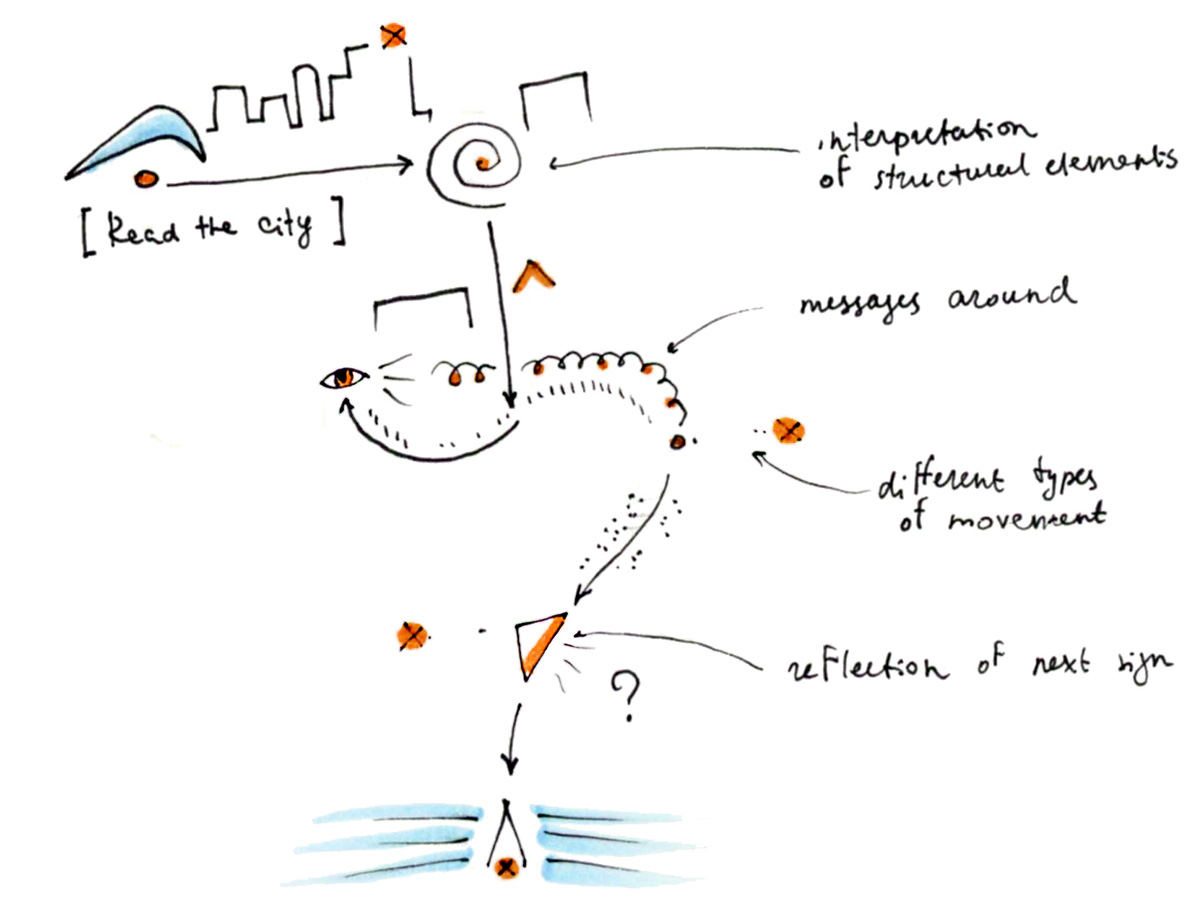 [Read the city]
interpretation
of structural elements
messages around
different types
of movement
reflection of next sign
?